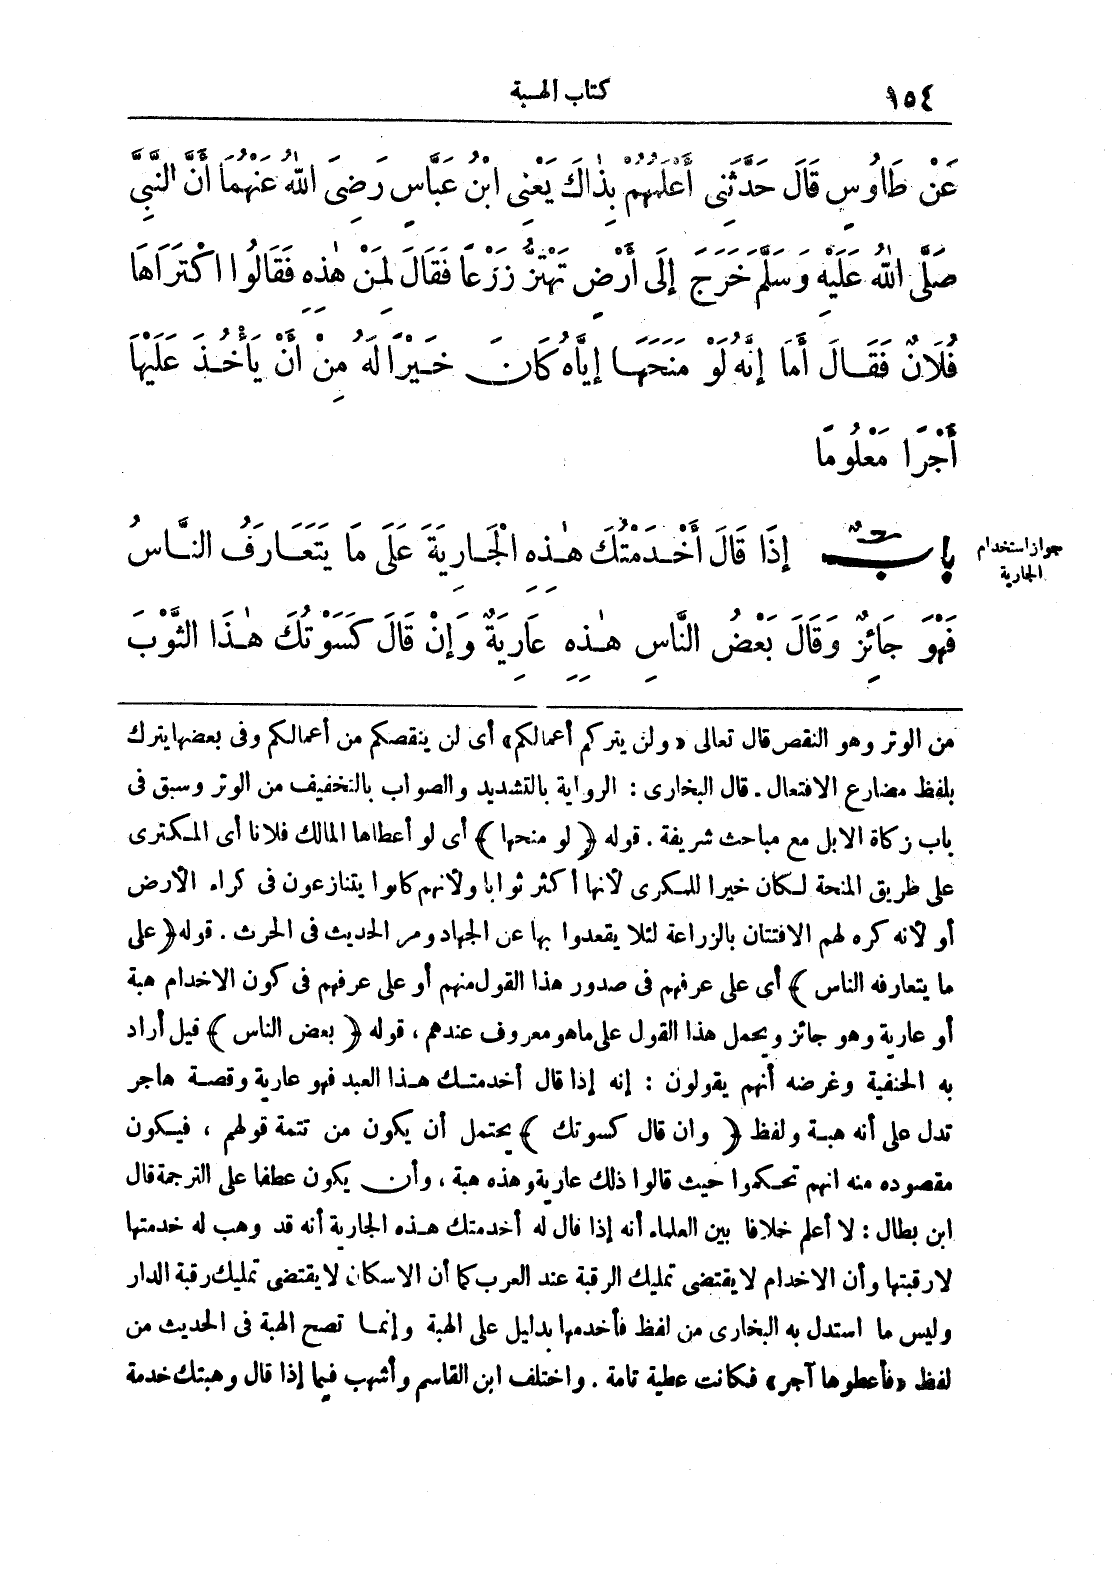 ١٥٤ كتاب الهبة
عَنْ طَاوُسٍ قَالَ حَدَّثَنِى أَعْلَمُهُمْ بِذَٰاكَ يَعْنِى ابْنُ عَبَّاسٍ رَضِىَ اللهُ عَنْهُمَا أَنَّ النَّبِىَّ
صَلَّى اللهُ عَلَيْهِ وَسَلَّمَ خَرَجَ إِلَى أَرْضٍ تَهْتَزُّ زَرْعاً فَقَالَ لِمَنْ هٰذِهِ فَقَالُوا اكْتَرَاهَا
فُلَانٌ فَقَالَ أَمَا إِنَّهُ لَوْ مَنَحَهَا إِيَّاهُ كَانَ خَيْرًا لَهُ مِنْ أَنْ يَأْخُذَ عَلَيْهَا
أَجْرًا مَعْلُومًا
بابٌ إِذَا قَالَ أَخْدَمْتُكَ هٰذِهِ الْجَارِيَةَ عَلَى مَا يَتَعَارَفُ النَّاسُ
جواز استخدام
الجارية
فَهْوَ جَائِزٌ وَقَالَ بَعْضُ النَّاسِ هٰذِهِ عَارِيَةٌ وَإِنْ قَالَ كَسَوْتُكَ هٰذَا الثَّوْبَ
من الوتر وهو النقص قال تعالى «ولن يتركم أعمالكم» أى لن ينقصكم من أعمالكم وفى بعضها يترك
بلفظ مضارع الافتعال . قال البخارى : الرواية بالتشديد والصواب بالتخفيف من الوتر وسبق فى
باب زكاة الابل مع مباحث شريفة . قوله ﴿ لو منحها ﴾ أى لو أعطاها المالك فلانا أى المكترى
على طريق المنحة لكان خيرا للمكرى لأنها أكثر ثوابا ولأنهم كانوا يتنازعون فى كراء الأرض
أو لأنه كره لهم الافتتان بالزراعة لئلا يقعدوا بها عن الجهاد ومر الحديث فى الحرث . قوله ﴿ على
ما يتعارفه الناس ﴾ أى على عرفهم فى صدور هذا القول منهم أو على عرفهم فى كون الاخدام هبة
أو عارية وهو جائز ويحمل هذا القول على ماهو معروف عندهم ، قوله ﴿ بعض الناس ﴾ قيل أراد
به الحنفية وغرضه أنهم يقولون : إنه إذا قال أخدمتك هذا العبد فهو عارية وقصة هاجر
تدل على أنه هبة ولفظ ﴿ وان قال كسوتك ﴾ يحتمل أن يكون من تتمة قولهم ، فيكون
مقصوده منه انهم تحكموا حيث قالوا ذلك عارية وهذه هبة ، وأن يكون عطفا على الترجمة قال
ابن بطال : لا أعلم خلافا بين العلماء أنه إذا قال له أخدمتك هذه الجارية أنه قد وهب له خدمتها
لارقبتها وأن الاخدام لايقتضى تمليك الرقبة عند العرب كما أن الاسكان لايقتضى تمليك رقبة الدار
وليس ما استدل به البخارى من لفظ فأخدمها بدليل على الهبة وإنما تصح الهبة فى الحديث من
لفظ «فأعطوها آجر» فكانت عطية تامة . واختلف ابن القاسم وأشهب فيما إذا قال وهبتك خدمة